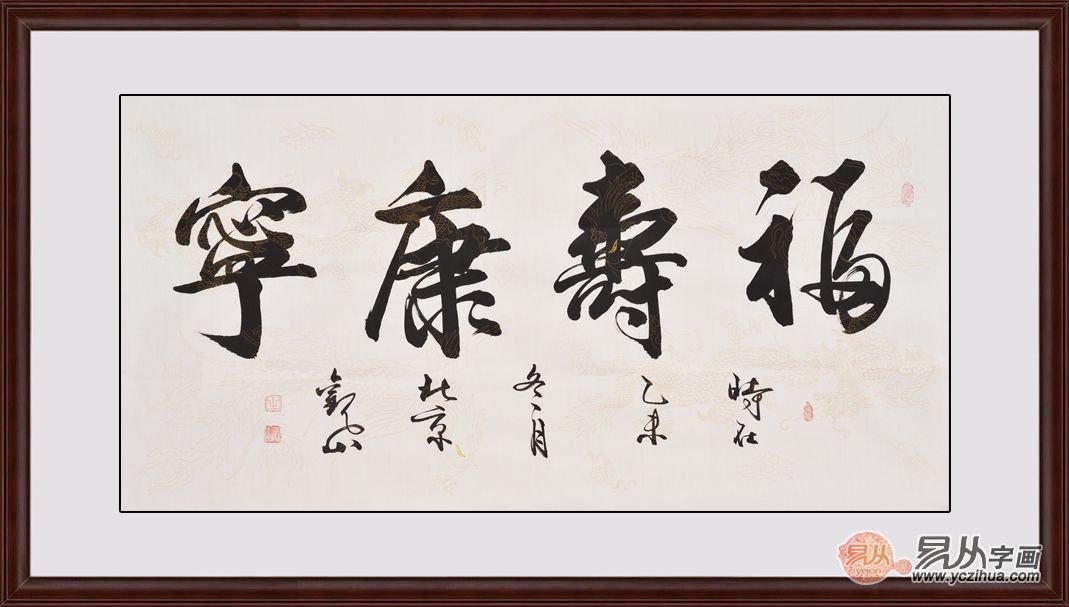 福壽康寧
時在
乙未
冬月
北京
觀山
易从
yejon
易从字画
www.yczihua.com